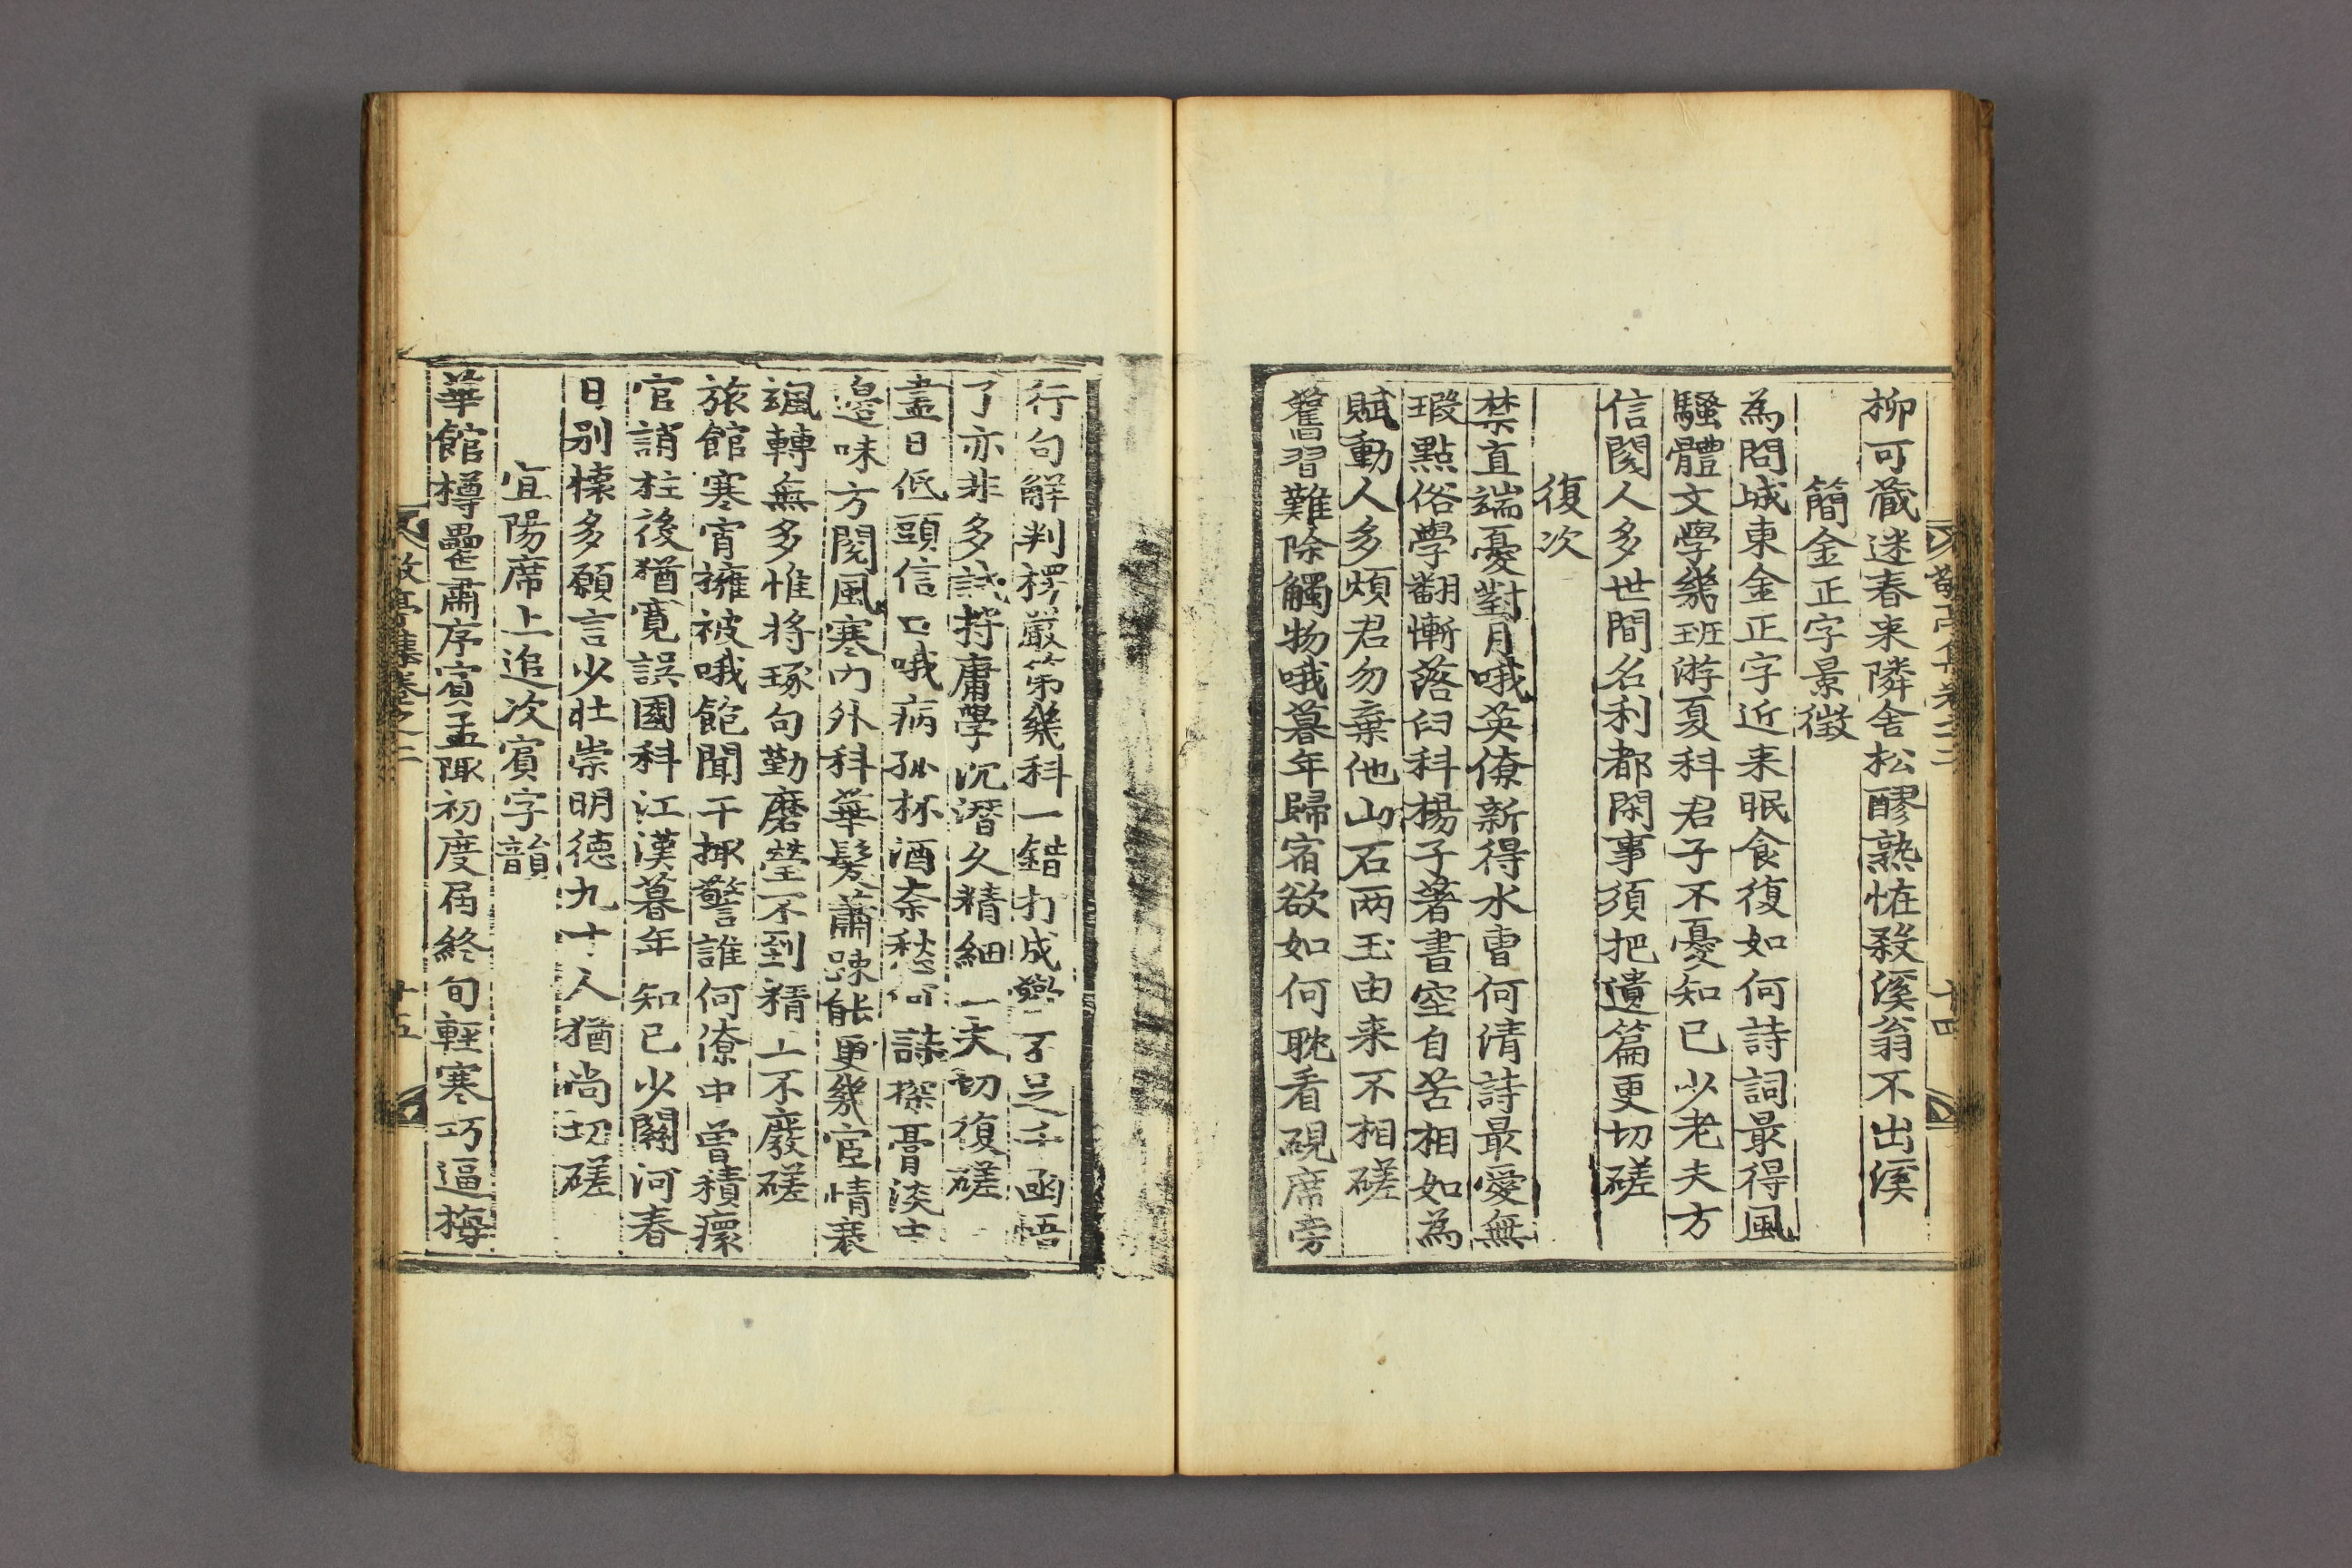 敬亭集卷之二
十四
柳可藏迷春来隣舍松醪熟恠殺溪翁不出溪
簡金正字景徵
為問城東金正字近来眠食復如何詩詞最得風
騷體文學幾班游夏科君子不憂知已少老夫方
信閱人多世間名利都閑事須把遺篇更切磋
復次
禁直端憂對月哦英僚新得水曹何清詩最愛無
瑕點俗學翻慚落臼科楊子著書空自苦相如為
賦動人多煩君勿棄他山石兩玉由来不相磋
舊習難除觸物哦暮年歸宿欲如何耽看硯席旁
行句解判楞嚴第幾科一錯打成 了足千函悟
了亦非多試持庸學沉潛久精細一夫切復磋
盡日低頭信口哦病孤杯酒奈愁何詩探膏淡中
邊味方閱風寒內外科華髮蕭踈能更幾宦情衰
颯轉無多惟将琢句勤磨瑩不到精工不廢磋
旅館寒宵擁被哦飽聞干掫警誰何僚中曾積瘝
官誚柱後猶寬誤國科江漢暮年知已少關河春
日別懷多願言少壯崇明德九十人猶尚切磋
宜陽席上追次賓字韻
華館樽罍肅序賓孟陬初度屆終旬輕寒巧逼梅
敬亭集卷之二
十五